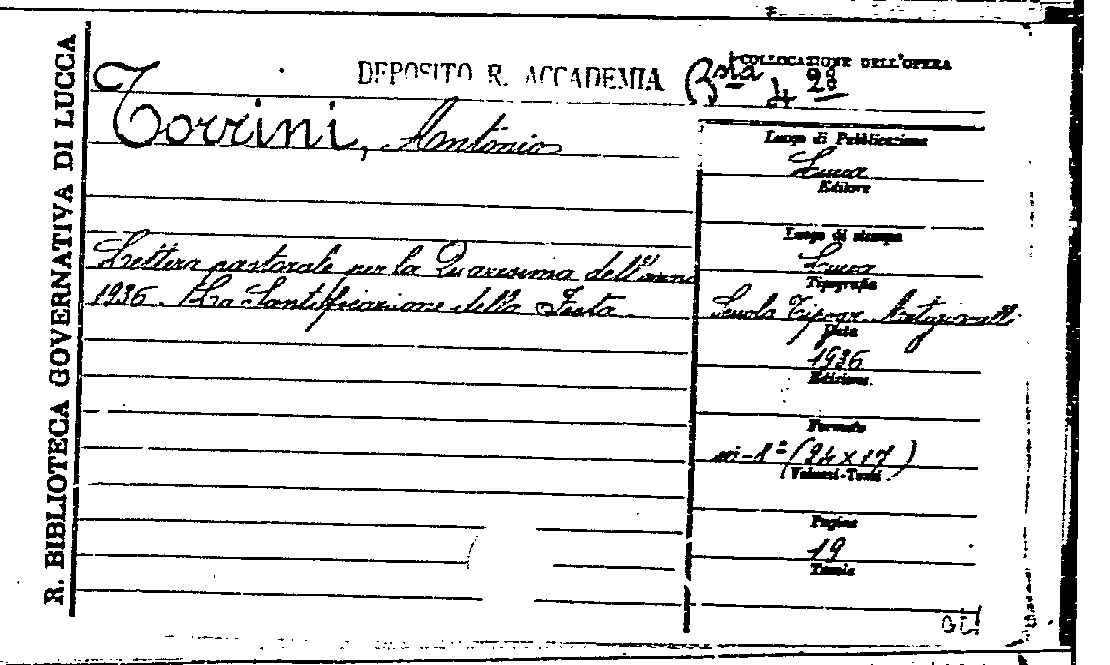 R. BIBLIOTECA GOVERNATIVA DI LUCCA
DEPOSITO R. ACCADEMIA
COLLOCAZIONE DELL'OPERA
Bsta 4 28
Torrini, Antonio
Lettera pastorale per la Quaresima dell'anno
1936. La Santificazione della Festa.
Luogo di Pubblicazione
Lucca
Editore
Luogo di stampa
Lucca
Tipografia
Scuola Tipogr.
Data
1936
Edizione
Formato
in-8° (24 x 17)
(Volumi-Tomi)
Pagine
19
Tavole